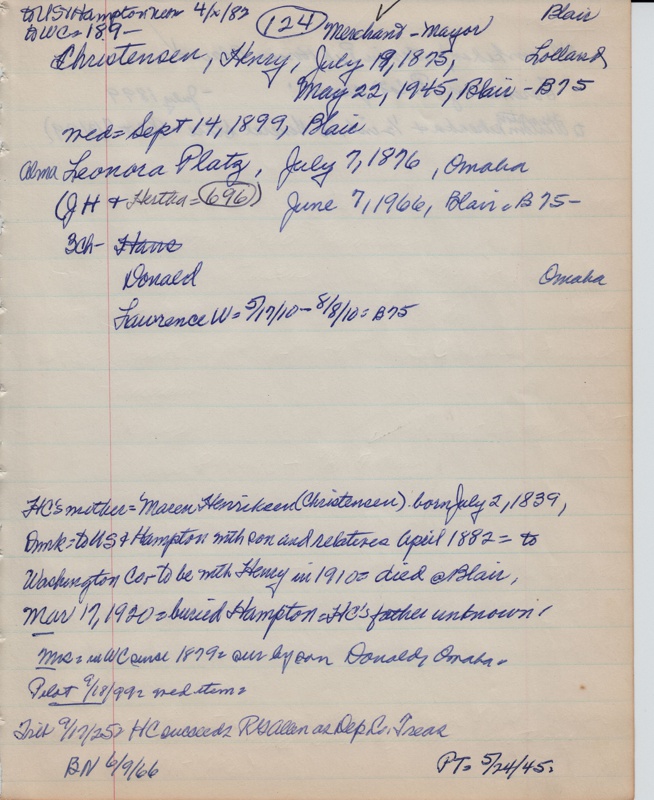 to US & Hampton Neb 4/x/82 (124) Blair
to WC = 189- Merchant - Mayor
Christensen, Henry, July 19, 1875, Lolland
May 22, 1945, Blair - B75
wed = Sept 14, 1899, Blair
Alma Leonora Platz, July 7, 1876, Omaha
(JH & Hertha = 696) June 7, 1966, Blair = B75 -
3ch - Hans
Donald Omaha
Lawrence W = 5/17/10 - 8/8/10 = B75
HC's mother = Maren Henriksen (Christensen) born July 2, 1839,
Dmk = to US & Hampton with son and relatives April 1882 = to
Washington Co. to be with Henry in 1910 = died @ Blair,
Mar 17, 1920 = buried Hampton = HC's father unknown.
Mrs = in WC since 1879 = sur by son Donald, Omaha.
Pilot 9/18/99 = wed item =
Trib 9/17/25 = HC succeeds R Allen as Dep Co. Treas
BN 6/9/66 PT = 5/24/45 =